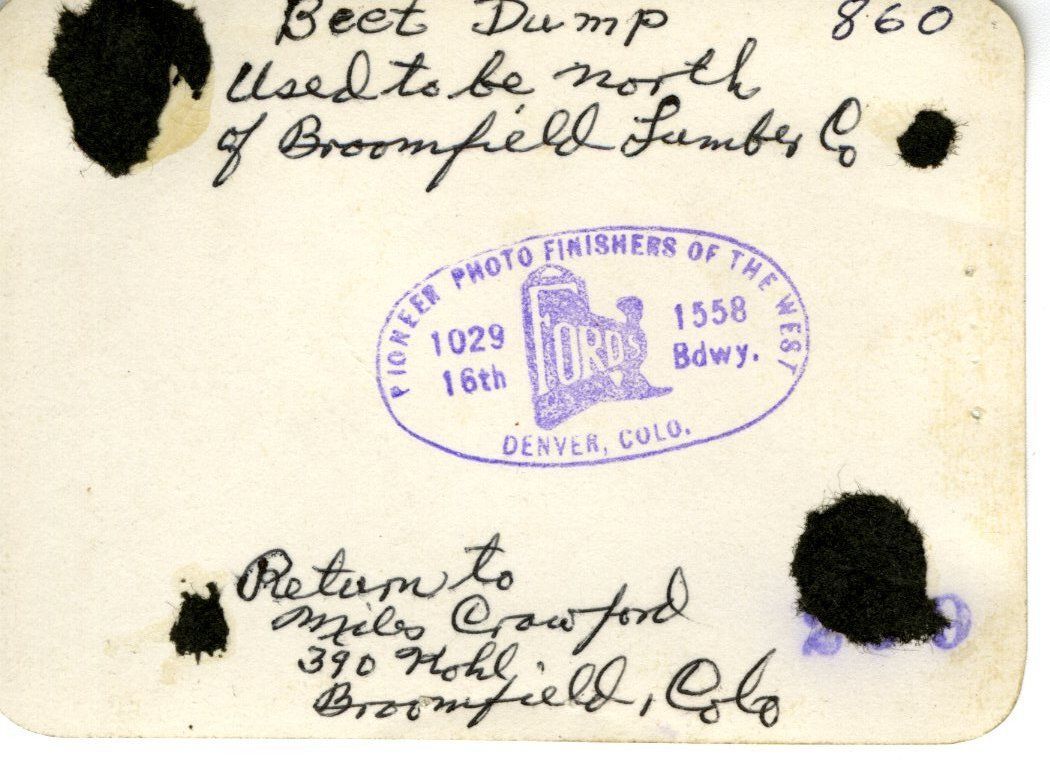 Beet Dump 860
Used to be north
of Broomfield Lumber Co
PIONEER PHOTO FINISHERS OF THE WEST
1029 1558
16th FORDS Bdwy.
DENVER, COLO.
Return to
Miles Crawford
390 Kohl
Broomfield, Colo